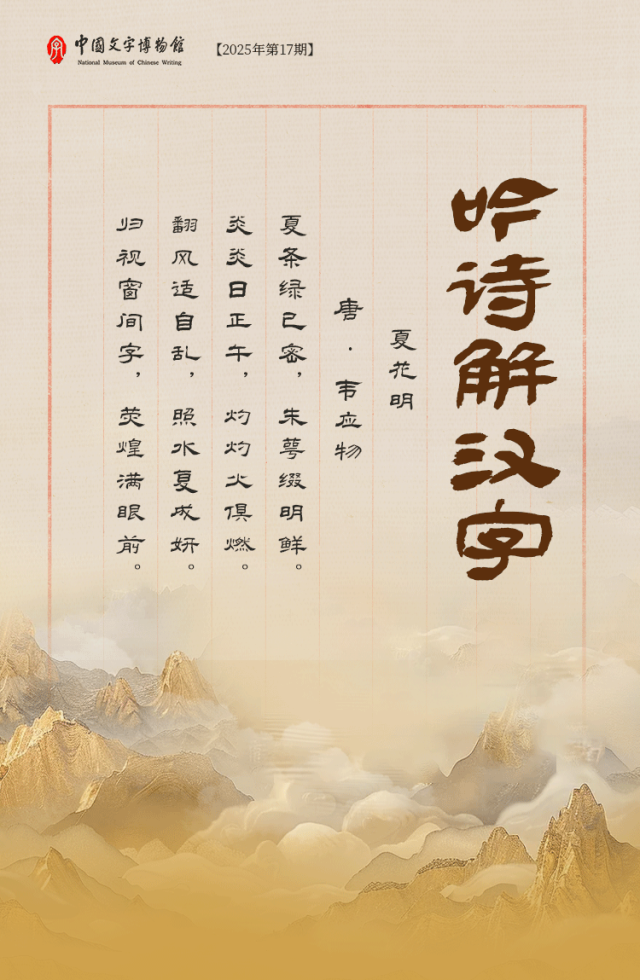 中国文字博物馆
National Museum of Chinese Writing
【2025年第17期】
吟诗解汉字
夏花明
唐·韦应物
夏条绿已密，朱萼缀明鲜。
炎炎日正午，灼灼火俱燃。
翻风适自乱，照水复成妍。
归视窗间字，荧煌满眼前。